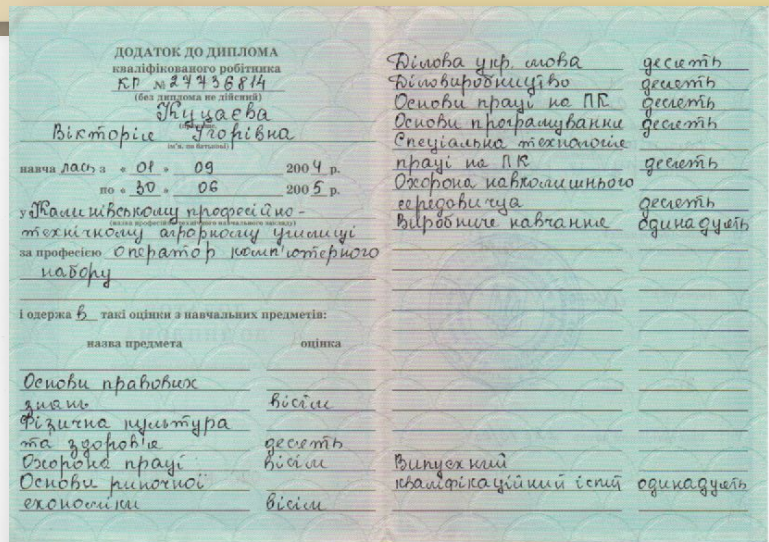 ДОДАТОК ДО ДИПЛОМА
кваліфікованого робітника
КР № 27736814
(без диплома не дійсний)
Куцаєва
Вікторія Ігорівна
(ім'я, по батькові)
навча лась з « 01 » 09 2004 р.
по « 30 » 06 2005 р.
у Калинівському професійно-
технічному аграрному училищі
за професією оператор комп'ютерного
набору
і одержа в такі оцінки з навчальних предметів:
назва предмета оцінка
Основи правових
знань вісім
Фізична культура
та здоров'я десять
Охорона праці вісім
Основи ринкової
економіки вісім
Ділова укр. мова десять
Діловиробництво десять
Основи праці на ПК десять
Основи програмування десять
Спеціальна технологія
праці на ПК десять
Охорона навколишнього
середовища десять
Виробниче навчання одинадцять
Випускний
кваліфікаційний іспит одинадцять